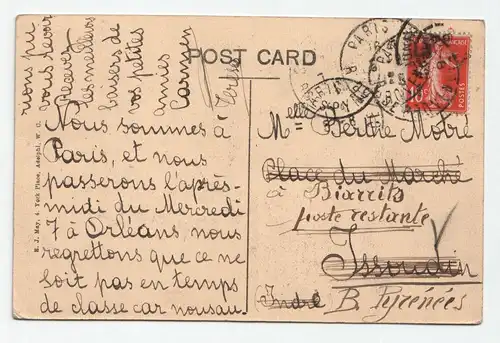 POST CARD
Nous sommes à
Paris, et nous
passerons l'après-
midi du Mercredi
7 à Orléans, nous
regrettons que ce ne
soit pas en temps
de classe car nousau-
rions pu
vous revoir
Recevez
les meilleurs
baisers de
vos petites
amies
Carmen
Melle Berthe Motre
Place du Marché
à Biarritz
poste restante
Issoudun
Indre B. Pyrénées
E. J. May, 4, York Place, Adelphi, W. C.
PARIS
POSTES